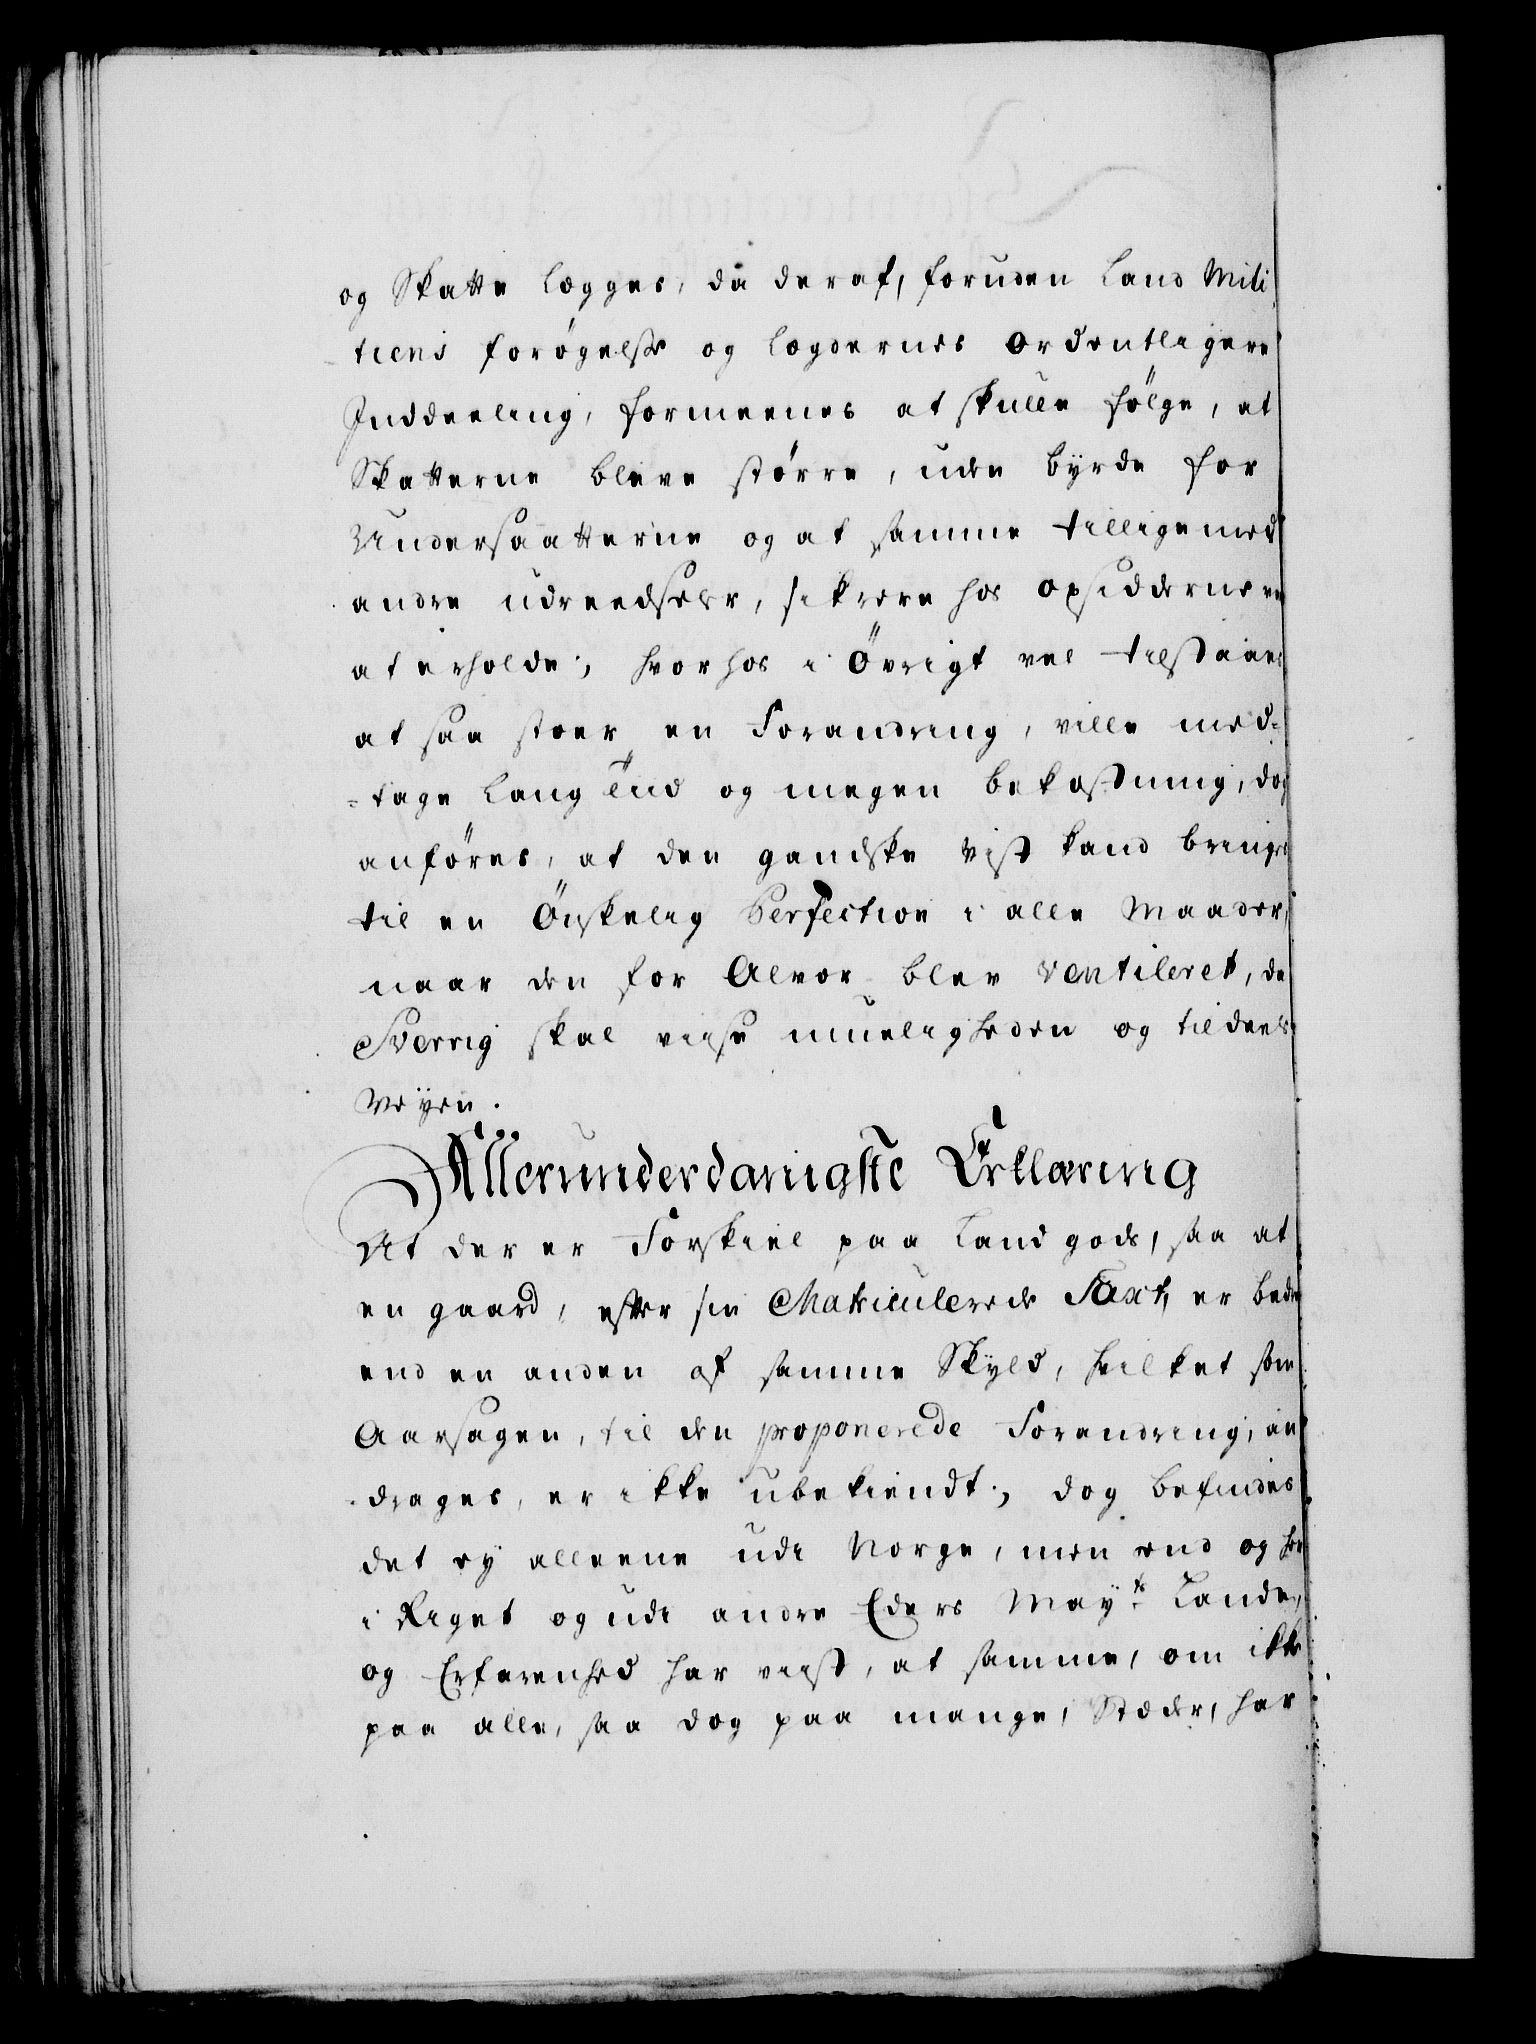 og Skatte lægges, da deraf, foruden Land Mili
tiens forøgelse og Lægdernes ordentligere
Inddeeling, formeenes at skulle følge, at
Skatterne bleve større, uden byrde for
Undersaatterne og at samme tilligemed
andre udreedseler, sikrere hos opsidderne er
at erholde; hvorhos i Øvrigt vel tilstaaes
at saa stoer en Forandring, ville med-
-tage Lang Tiid og megen bekostning, dog
anføres, at den gandske vist kand bringes
til en Ønskelig Perfection i alle Maader,
naar den for Alvor blev ventileret, da
Sverrig skal viise mueligheden og tildeels
Veyen.
Allerunderdanigste Erklæring
At der er Forskiel paa Land gods, saa at
en gaard, efter sin Matriculerede Taxt, er bedre
end en anden af samme Skyld, hvilket som
Aarsagen, til den proponerede Forandring, an
drages, er ikke ubekiendt; dog befindes
det ey alleene udi Norge, men end og her
i Riget og udi andre Eders May.ts Lande,
og Erfarenhed har viist, at samme, om ikke
paa alle, saa dog paa mange, Stæder, har